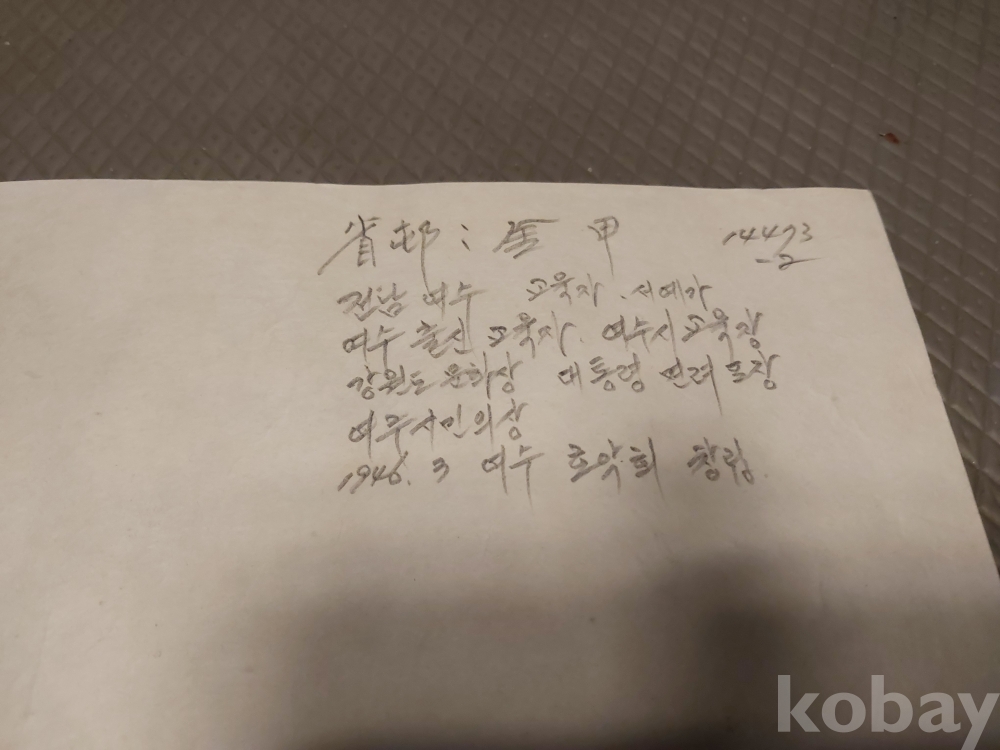 省邨: 甲 14473
-2
전남 여수 교육자. 서예가
여수 출신 교육자. 여수시교육장
강원도 문화상 대통령 면려포장
여수시민의상
1946. 3 여수 호악회 창립.
kobay